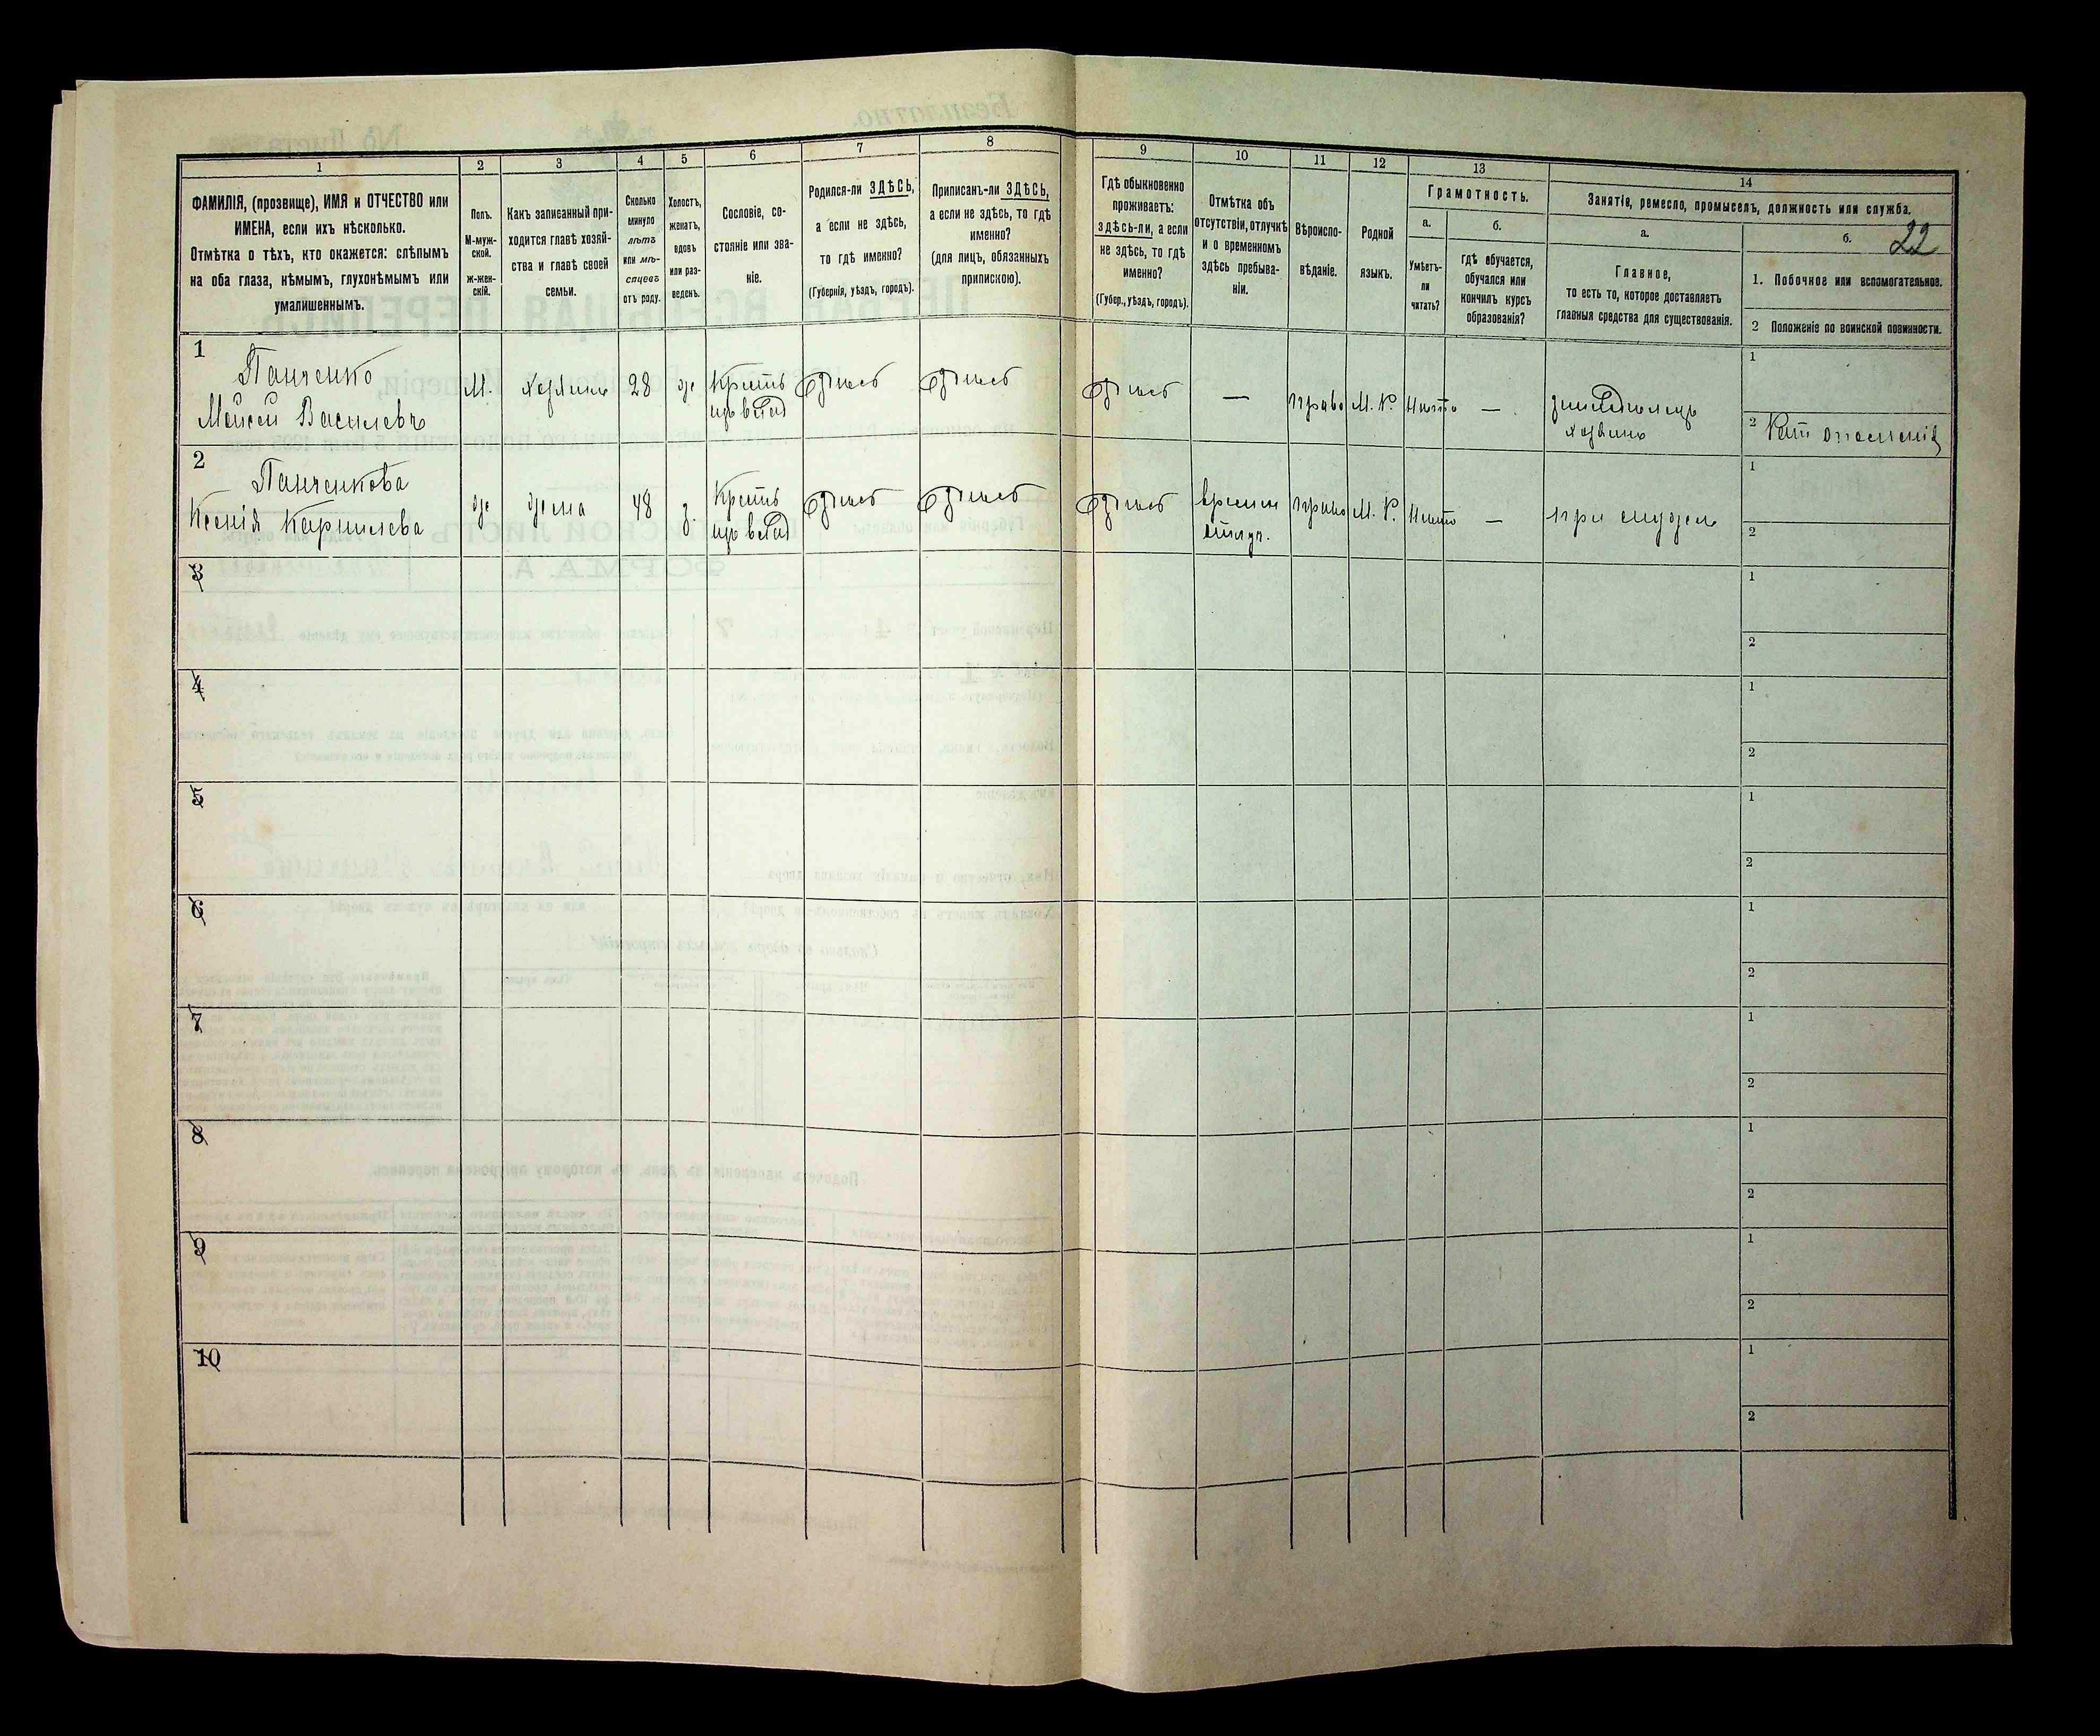 1
2
3
4
5
6
7
8
9
10
11
12
13
14
ФАМИЛІЯ, (прозвище), ИМЯ и ОТЧЕСТВО или
ИМЕНА, если ихъ нѣсколько.
Отмѣтка о тѣхъ, кто окажется: слѣпымъ
на оба глаза, нѣмымъ, глухонѣмымъ или
умалишеннымъ.
Полъ.
М-муж-
ской.
ж-жен-
скій.
Какъ записанный при-
ходится главѣ хозяй-
ства и главѣ своей
семьи.
Сколько
минуло
лѣтъ
или мѣ-
сяцевъ
отъ роду.
Холостъ,
женатъ,
вдовъ
или раз-
веденъ.
Сословіе, со-
стояніе или зва-
ніе.
Родился-ли ЗДѢСЬ,
а если не здѣсь,
то гдѣ именно?
(Губернія, уѣздъ, городъ).
Приписанъ-ли ЗДѢСЬ,
а если не здѣсь, то гдѣ
именно?
(для лицъ, обязанныхъ
припискою).
Гдѣ обыкновенно
проживаетъ:
здѣсь-ли, а если
не здѣсь, то гдѣ
именно?
(Губер., уѣздъ, городъ).
Отмѣтка объ
отсутствіи, отлучкѣ
и о временномъ
здѣсь пребыва-
ніи.
Вѣроиспо-
вѣданіе.
Родной
языкъ.
Грамотность.
а.
Умѣетъ-
ли
читать?
б.
гдѣ обучается,
обучался или
кончилъ курсъ
образованія?
Занятіе, ремесло, промыселъ, должность или служба.
а.
Главное,
то есть то, которое доставляетъ
главныя средства для существованія.
б. 22
1. Побочное или вспомогательное.
2 Положеніе по воинской повинности.
1
Панченко
Мойсей Василевъ
М.
хозяинъ
28
ж
Крестъ
изъ влад
здѣсь
здѣсь
здѣсь
—
право
М. Р.
Нѣтъ
—
земледѣлецъ
хозяинъ
1
2 Рат ополченія
2
Панченкова
Ксенія Корнилева
ж
жена
48
з.
Крестъ
изъ влад
здѣсь
здѣсь
здѣсь
времен
отлуч.
право
М. Р.
Нѣтъ
—
при мужѣ
1
2
3
1
2
4
1
2
5
1
2
6
1
2
7
1
2
8
1
2
9
1
2
10
1
2